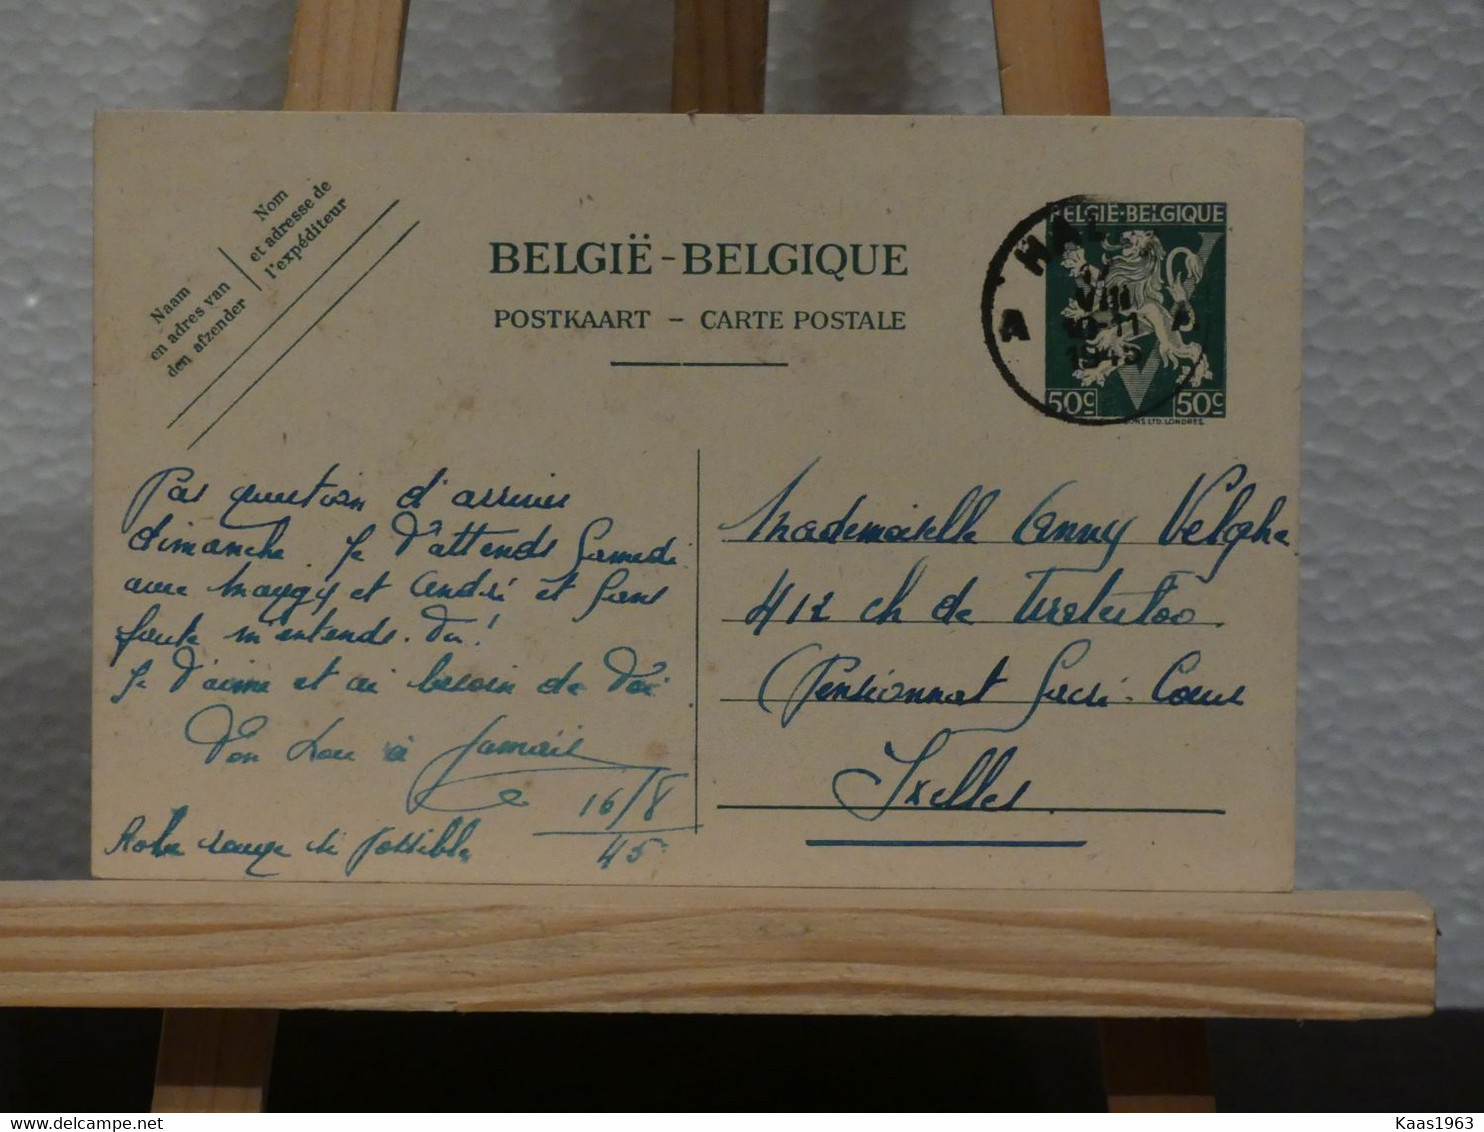 Nom
et adresse de
l'expéditeur
Naam
en adres van
den afzender
BELGIË - BELGIQUE
POSTKAART - CARTE POSTALE
BELGIE-BELGIQUE
HAL
17
VIII
10-11
1945
A A
50c 50c
SONS LTD. LONDRES
Pas question d'arriver
dimanche Je t'attends Samedi
avec Maggy et André et Sans
faute m'entends. tu!
Je t'aime et ai besoin de toi
Ton Lou à Jamais
16/8
45
Robe rouge si possible
Mademoiselle Anny Velghe
412 ch de Waterloo.
Pensionnat Sacré-Coeur
Ixelles.
delcampe.net
Kaas1963